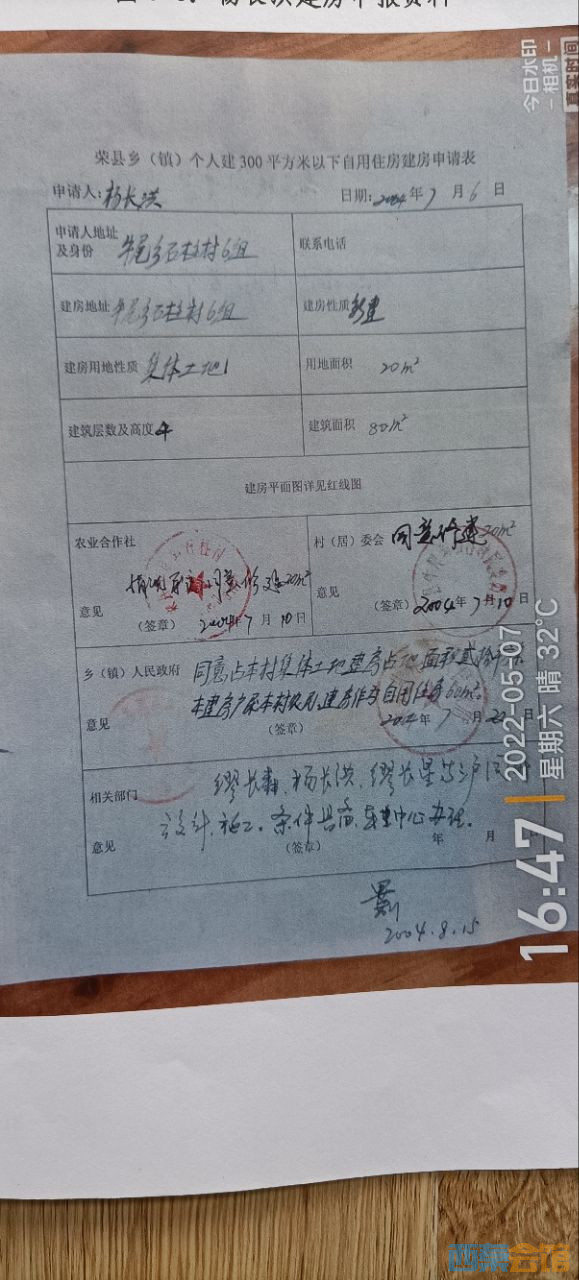 荣县乡（镇）个人建300平方米以下自用住房建房申请表
申请人：杨长洪 日期：2004年7月6日
申请人地址及身份 牛尾乡石柱村6组 联系电话
建房地址 牛尾乡石柱村6组 建房性质 新建
建房用地性质 集体土地 用地面积 20m²
建筑层数及高度 4 建筑面积 80m²
建房平面图详见红线图
农业合作社 同意修建20m² 村（居）委会 同意修建20m²
意见 （签章） 2004年7月10日 意见 （签章） 2004年7月10日
乡（镇）人民政府 同意占本村集体土地建房占地面积贰拾
本建房户系本村农户，建房作为自用住房60m²。
意见 （签章） 2004年7月22日
相关部门 缪长森、杨长洪、缪长星等三户
设计、施工。条件具备，中心办理。
意见 （签章） 年 月
2004.8.15
今日水印
-相机-
真实时间
16:47
2022-05-07
星期六 晴 32℃
西荣会馆